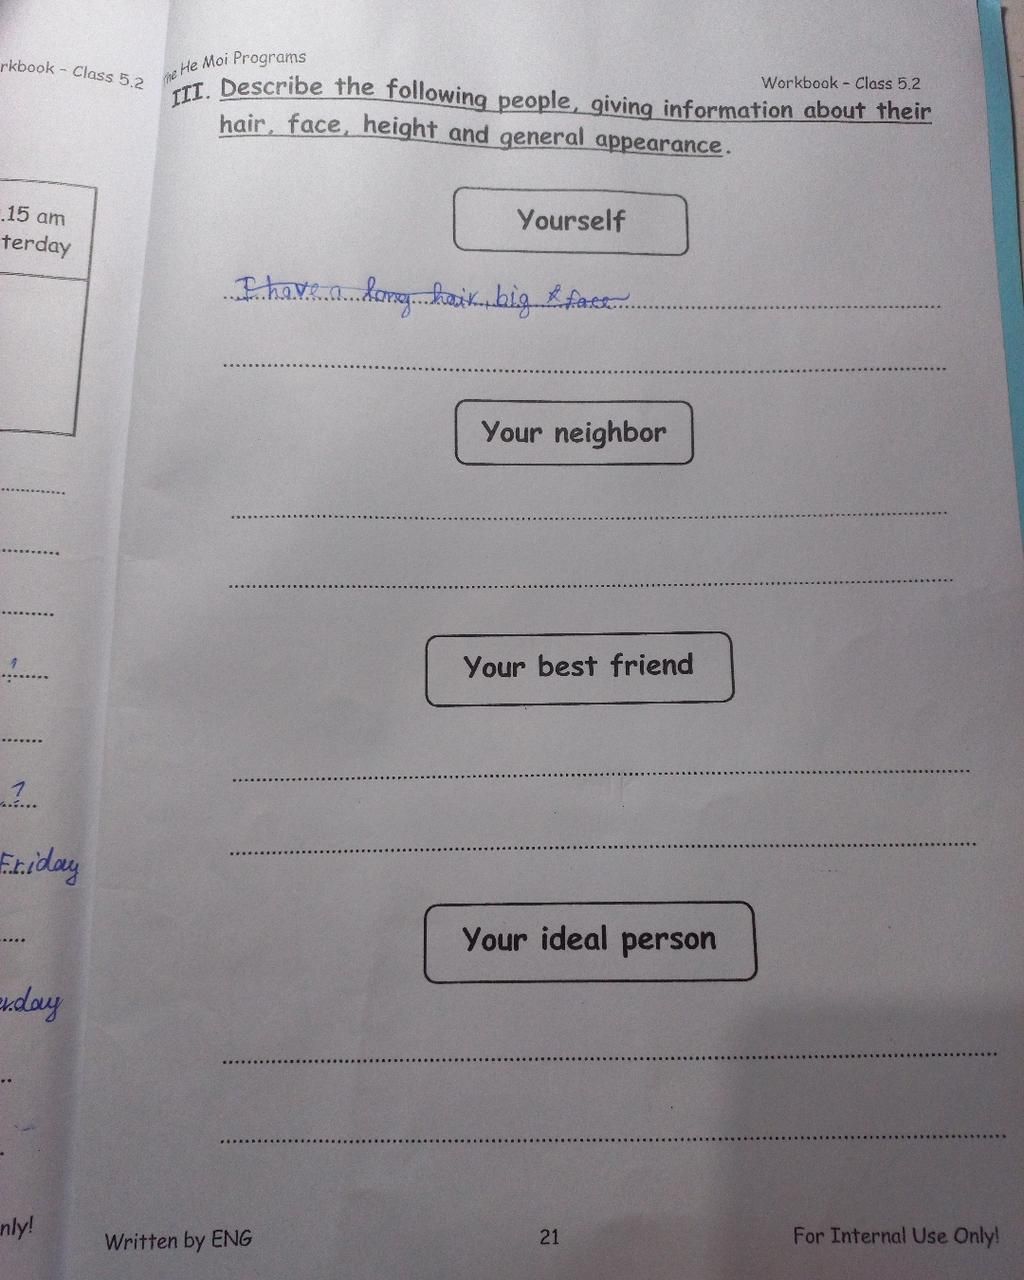 rkbook - Class 5.2
.15 am
terday
?
?
Friday
rday
nly!
The He Moi Programs
Workbook - Class 5.2
III. Describe the following people, giving information about their
hair, face, height and general appearance.
Yourself
I have a long hair, big face
Your neighbor
Your best friend
Your ideal person
Written by ENG
21
For Internal Use Only!